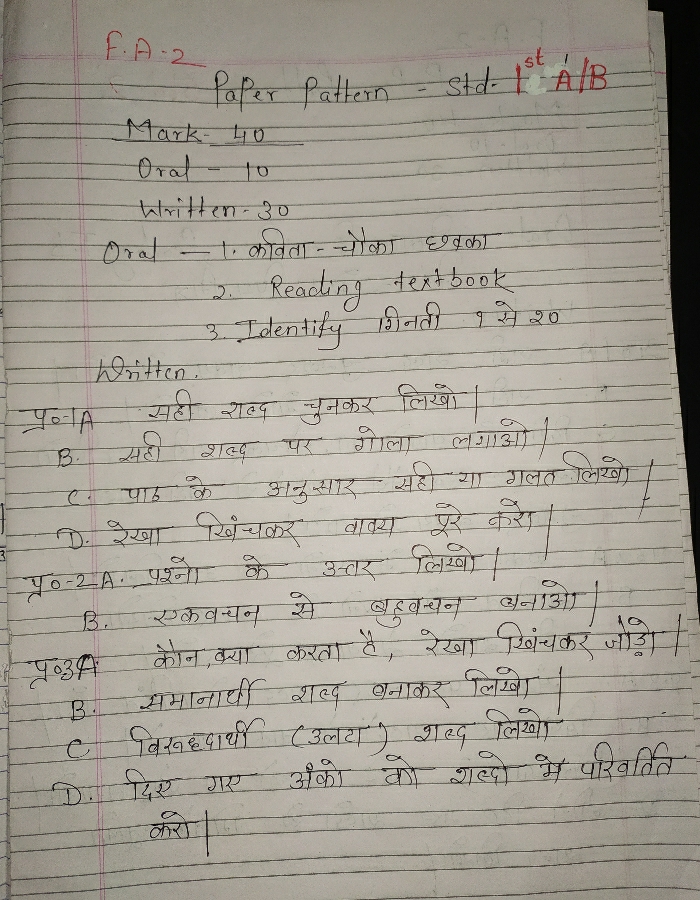 F.A-2
Paper Pattern - Std- 1st A/B
Mark- 40
Oral - 10
Written-30
Oral - 1. कविता - चौका छक्का
2. Reading textbook
3. Identify गिनती १ से २०
Written.
प्र०-1A सही शब्द चुनकर लिखो|
B. सही शब्द पर गोला लगाओ|
C. पाठ के अनुसार सही या गलत लिखो|
D. रेखा खिंचकर वाक्य पूरे करो|
प्र०-2 A. प्रश्नो के उत्तर लिखो|
B. एकवचन से बहुवचन बनाओ|
प्र०3A कौन, क्या करता है, रेखा खिंचकर जोड़ो|
B. समानार्थी शब्द बनाकर लिखो|
C विरूद्दार्थी (उलटा) शब्द लिखो|
D. दिए गए अंको को शब्दो मे परिवर्तित
करो|